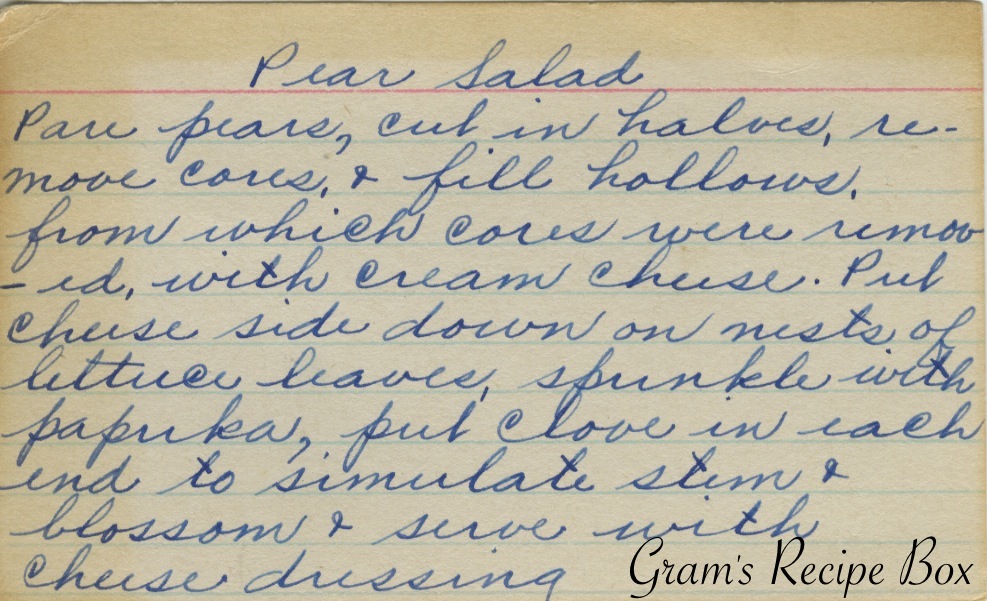 Pear Salad
Pare pears, cut in halves, re-
move cores, & fill hollows,
from which cores were remov
-ed, with cream cheese. Put
cheese side down on nests of
lettuce leaves, sprinkle with
paprika, put clove in each
end to simulate stem &
blossom & serve with
cheese dressing
Gram's Recipe Box